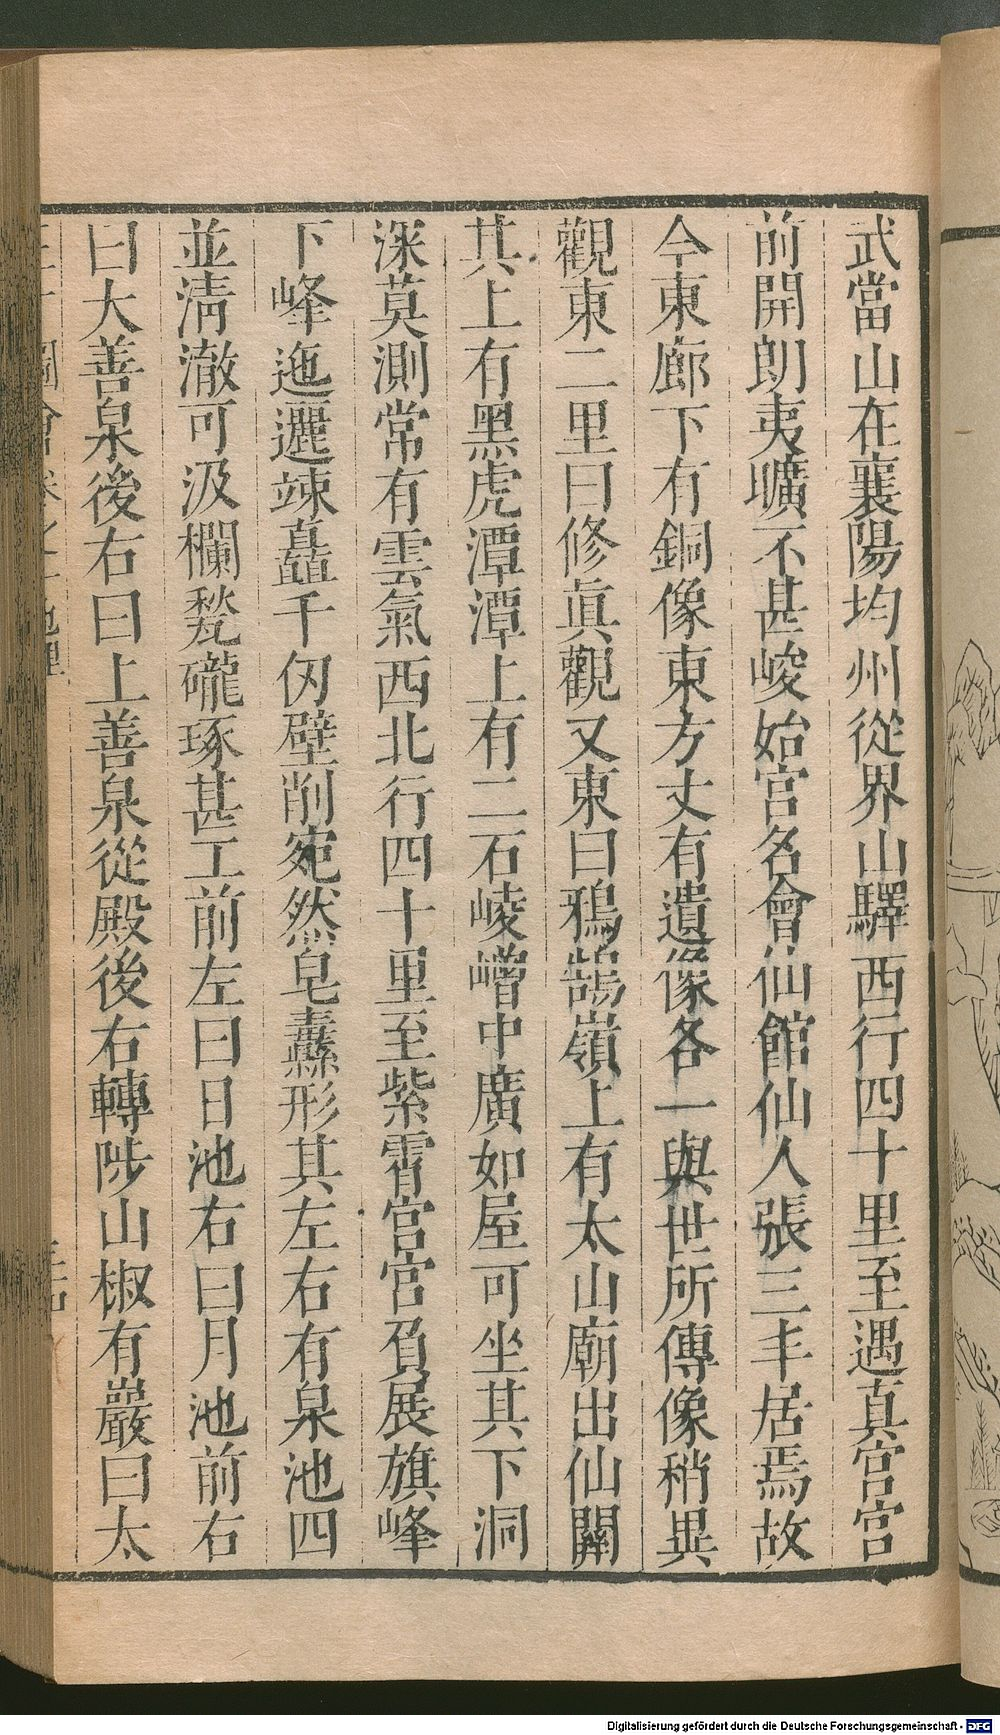 武當山在襄陽均州從界山驛西行四十里至遇真宮宮
前開朗夷曠不甚峻始宮名會仙館仙人張三丰居焉故
今東廊下有銅像東方丈有遺像各一與世所傳像稍異
觀東二里曰修眞觀又東曰鴉鵠嶺上有太山廟出仙關
其上有黑虎潭潭上有二石崚嶒中廣如屋可坐其下洞
深莫測常有雲氣西北行四十里至紫霄宮宮負展旗峰
下峰迤邐竦矗千仞壁削宛然皂纛形其左右有泉池四
並淸澈可汲欄甃礲琢甚工前左曰日池右曰月池前右
曰大善泉後右曰上善泉從殿後右轉陟山椒有巖曰太
三才圖會卷之 地理
Digitalisierung gefördert durch die Deutsche Forschungsgemeinschaft - DFG